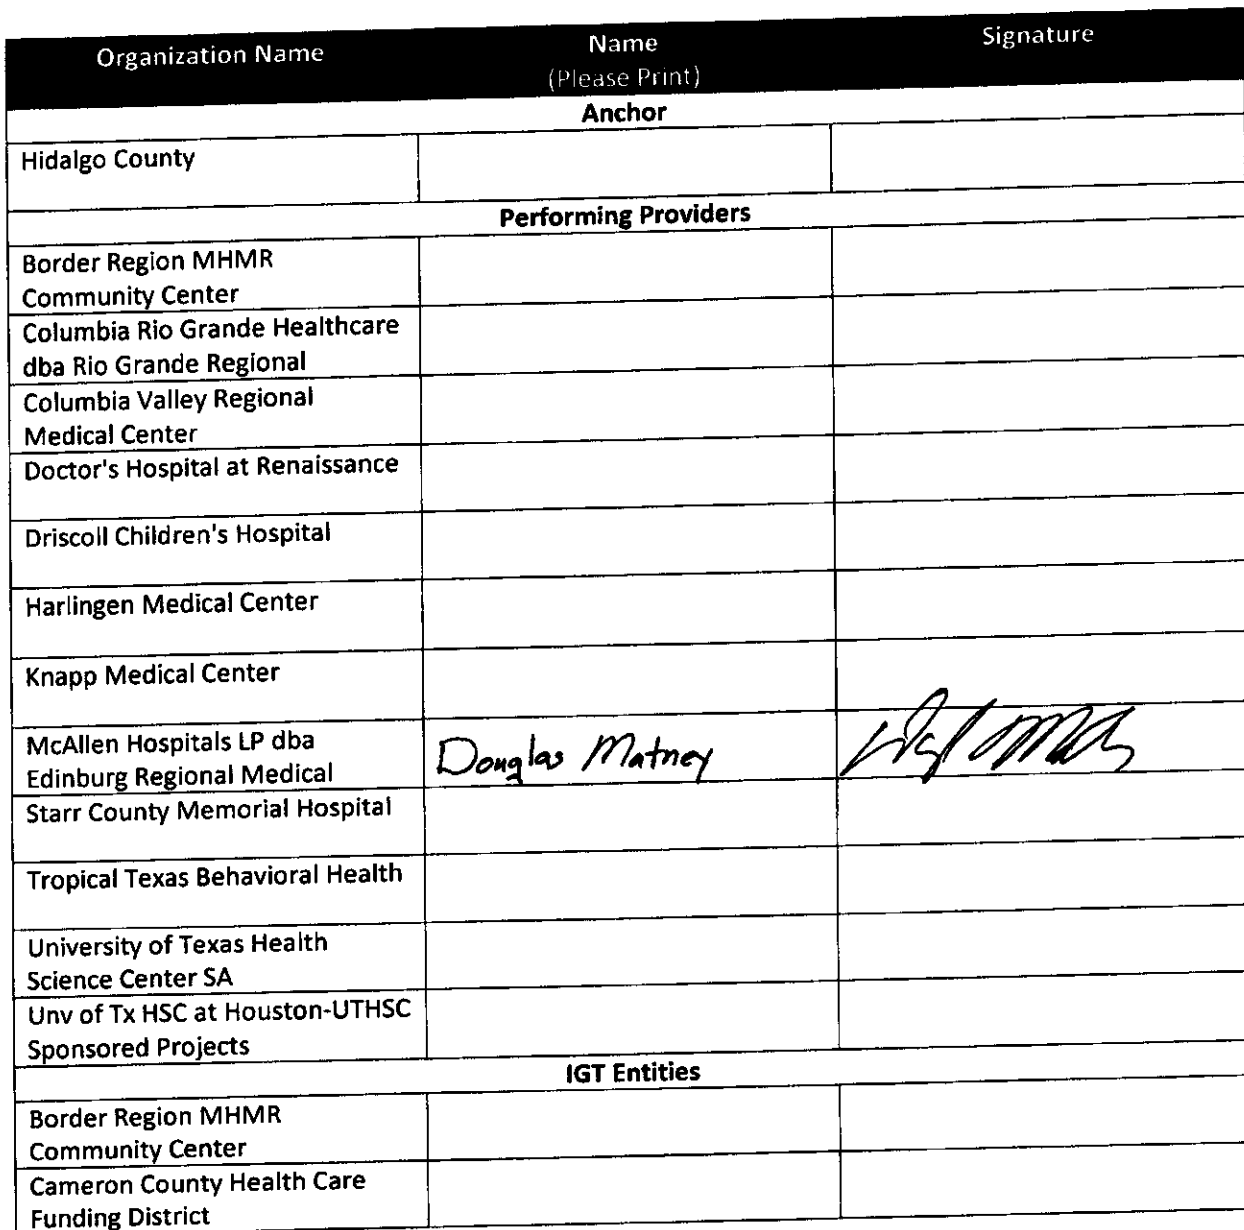 Organization Name
Name
(Please Print)
Signature
Anchor
Hidalgo County
Performing Providers
Border Region MHMR
Community Center
Columbia Rio Grande Healthcare
dba Rio Grande Regional
Columbia Valley Regional
Medical Center
Doctor's Hospital at Renaissance
Driscoll Children's Hospital
Harlingen Medical Center
Knapp Medical Center
McAllen Hospitals LP dba
Edinburg Regional Medical
Douglas Matney
Starr County Memorial Hospital
Tropical Texas Behavioral Health
University of Texas Health
Science Center SA
Unv of Tx HSC at Houston-UTHSC
Sponsored Projects
IGT Entities
Border Region MHMR
Community Center
Cameron County Health Care
Funding District